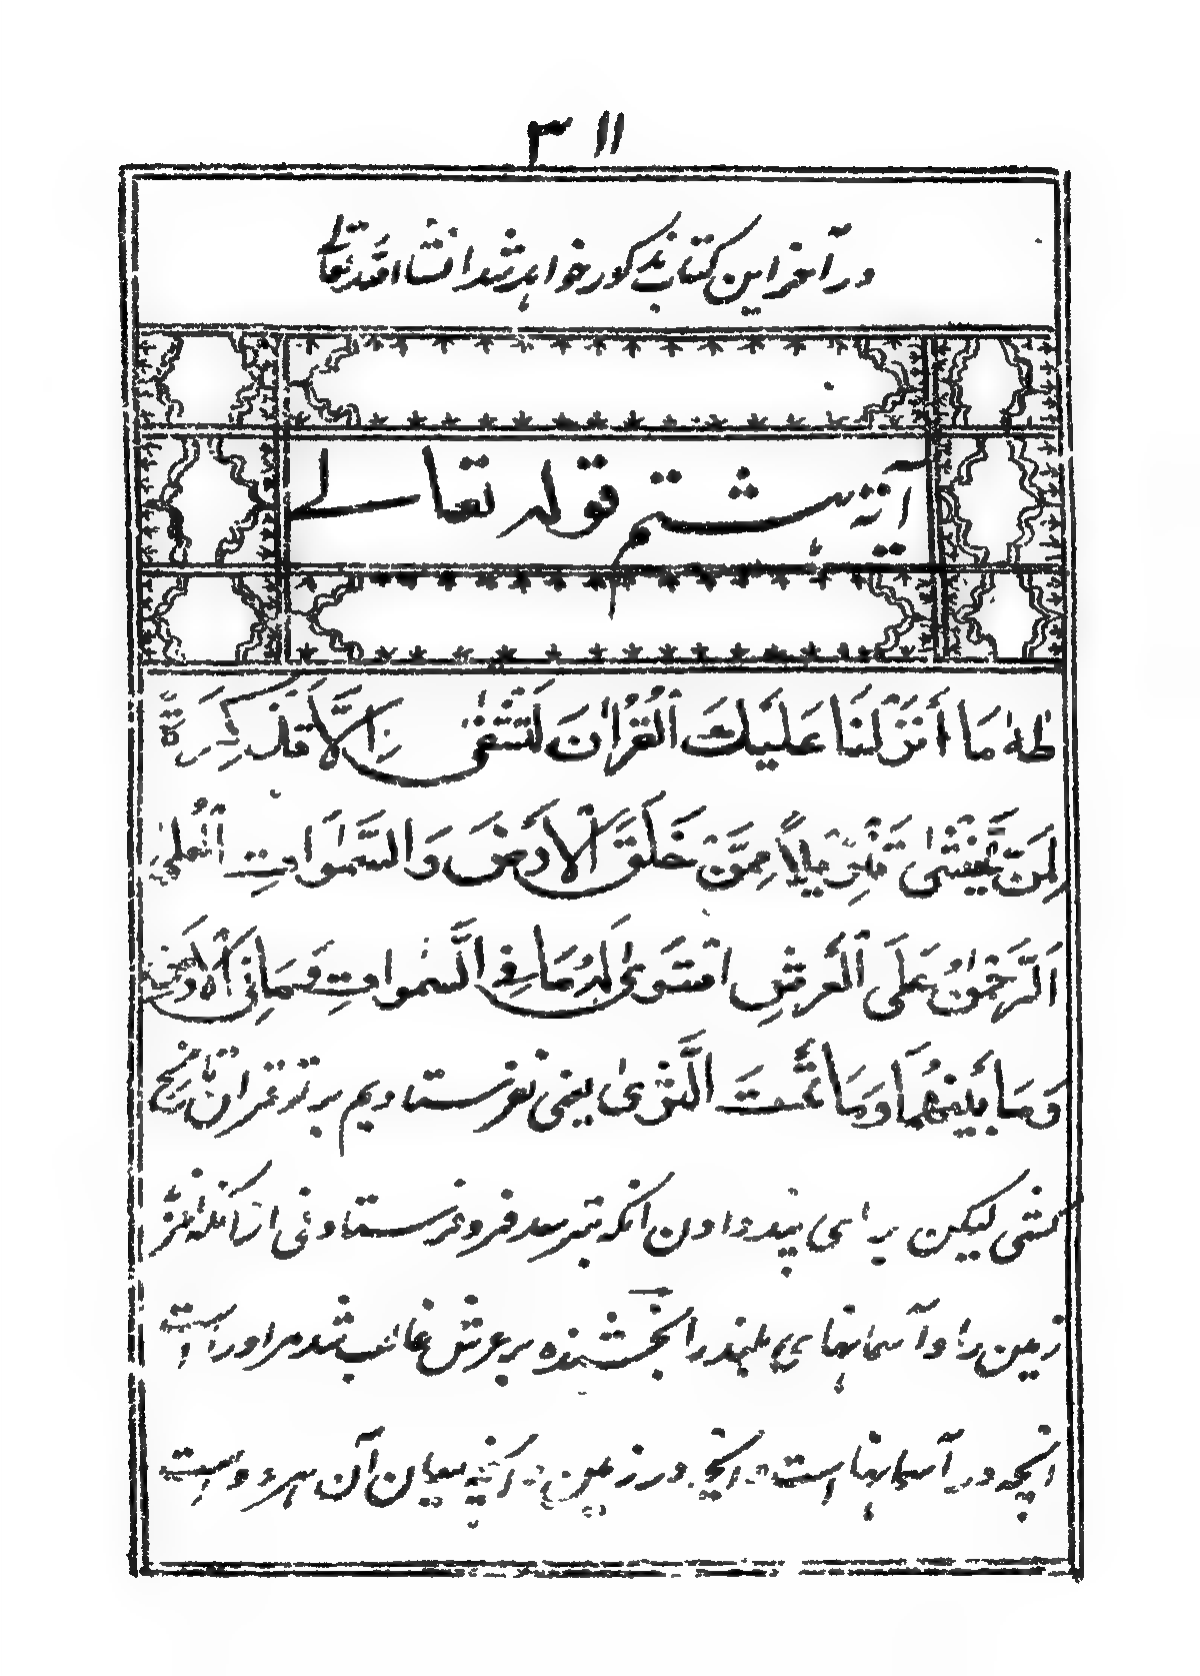 ۳۱۱
در آخر این کتاب مذکور خواهد شد انشاء الله تعالی
آیة هشتم قوله تعالی
طٰهٰ مَا أَنْزَلْنَا عَلَیْكَ الْقُرْاٰنَ لَتَشْقٰی اِلَّا تَذْكِرَةً
لِمَنْ یَخْشٰی تَنْزِیْلًا مِمَّنْ خَلَقَ الْاَرْضَ وَالسَّمٰوَاتِ الْعُلٰی
اَلرَّحْمٰنُ عَلَی الْعَرْشِ اسْتَوٰی لَهُ مَا فِی السَّمٰوَاتِ وَمَا فِی الْاَرْضِ
وَمَا بَیْنَهُمَا وَمَا تَحْتَ الثَّرٰی یعنی نفرستادیم بر تو قرآن
کشی لیکن برای پند دادن انکه بترسد فرو فرستادنی از انکه
زمین را و آسمانهای بلند را بخشنده بر عرش غالب شد مر او راست
انچه در آسمانها است و انچه در زمین و انچه میان آن هر دو است